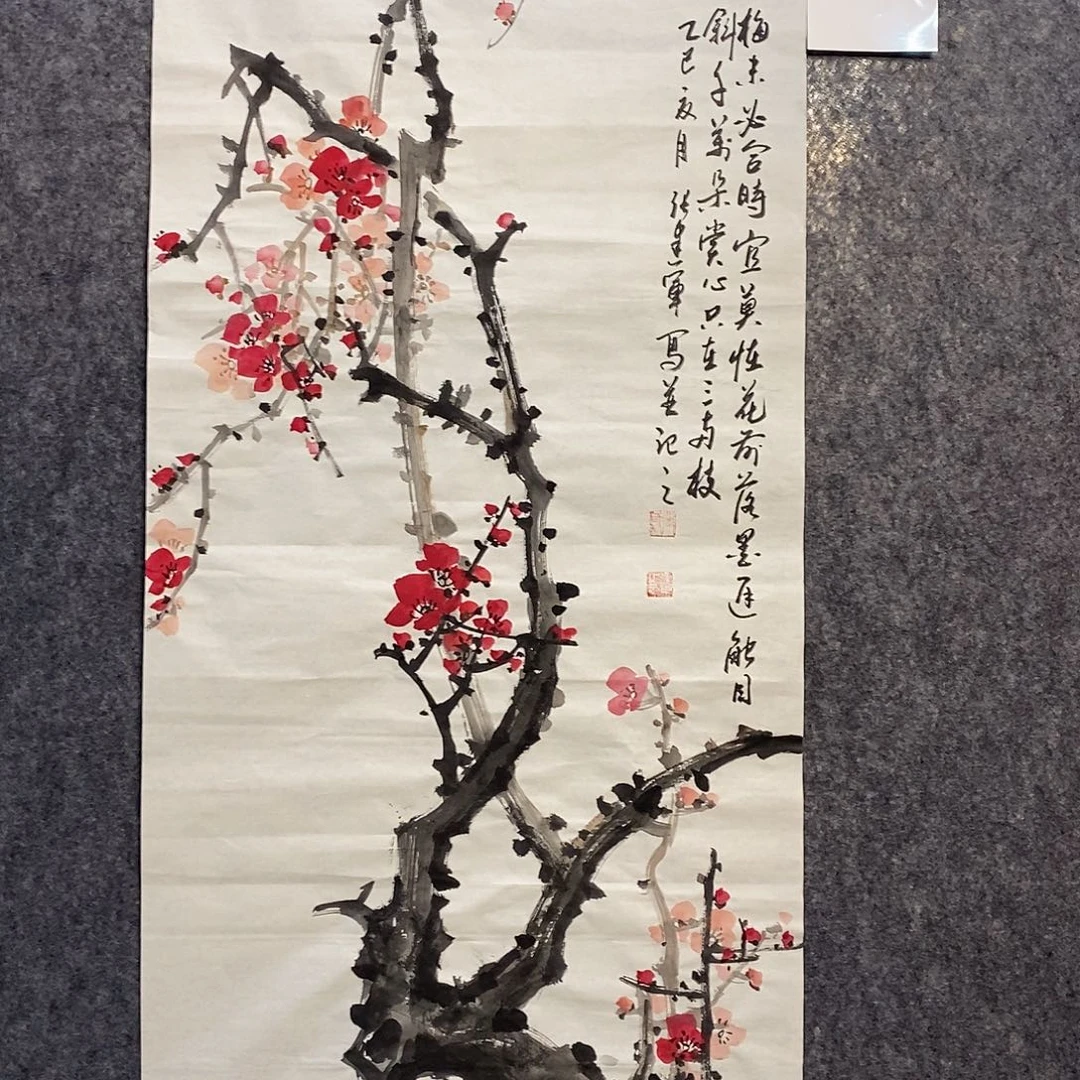 梅未必合時宜莫怪花前落墨遲觸目
斜千萬朵賞心只在三兩枝
乙巳夏月 張建軍寫並記之